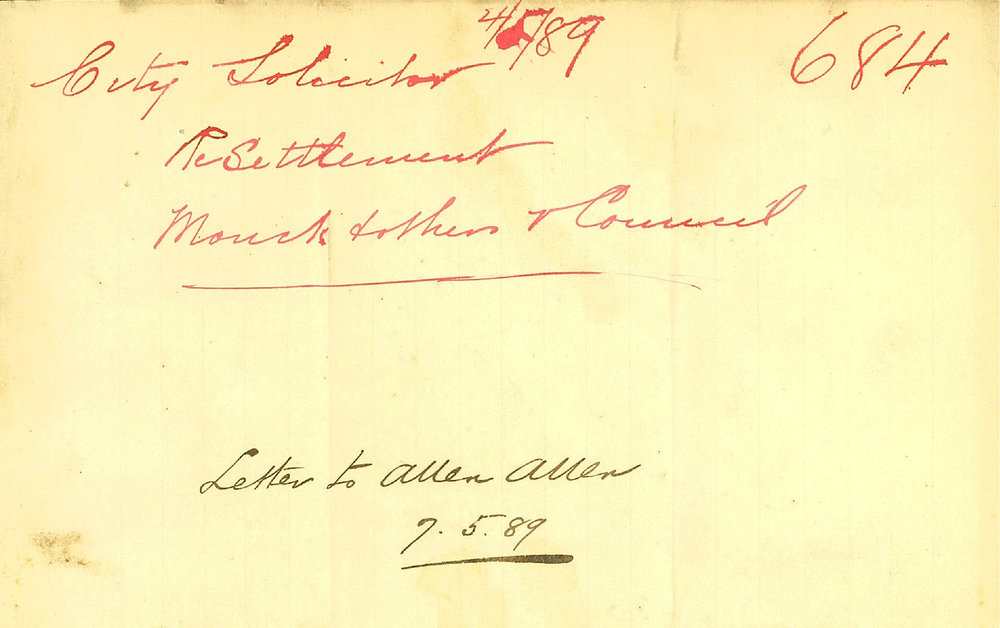 City Solicitor 4/5/89 684
Re Settlement
Monck & others v Council
Letter to Allen Allen
7.5.89